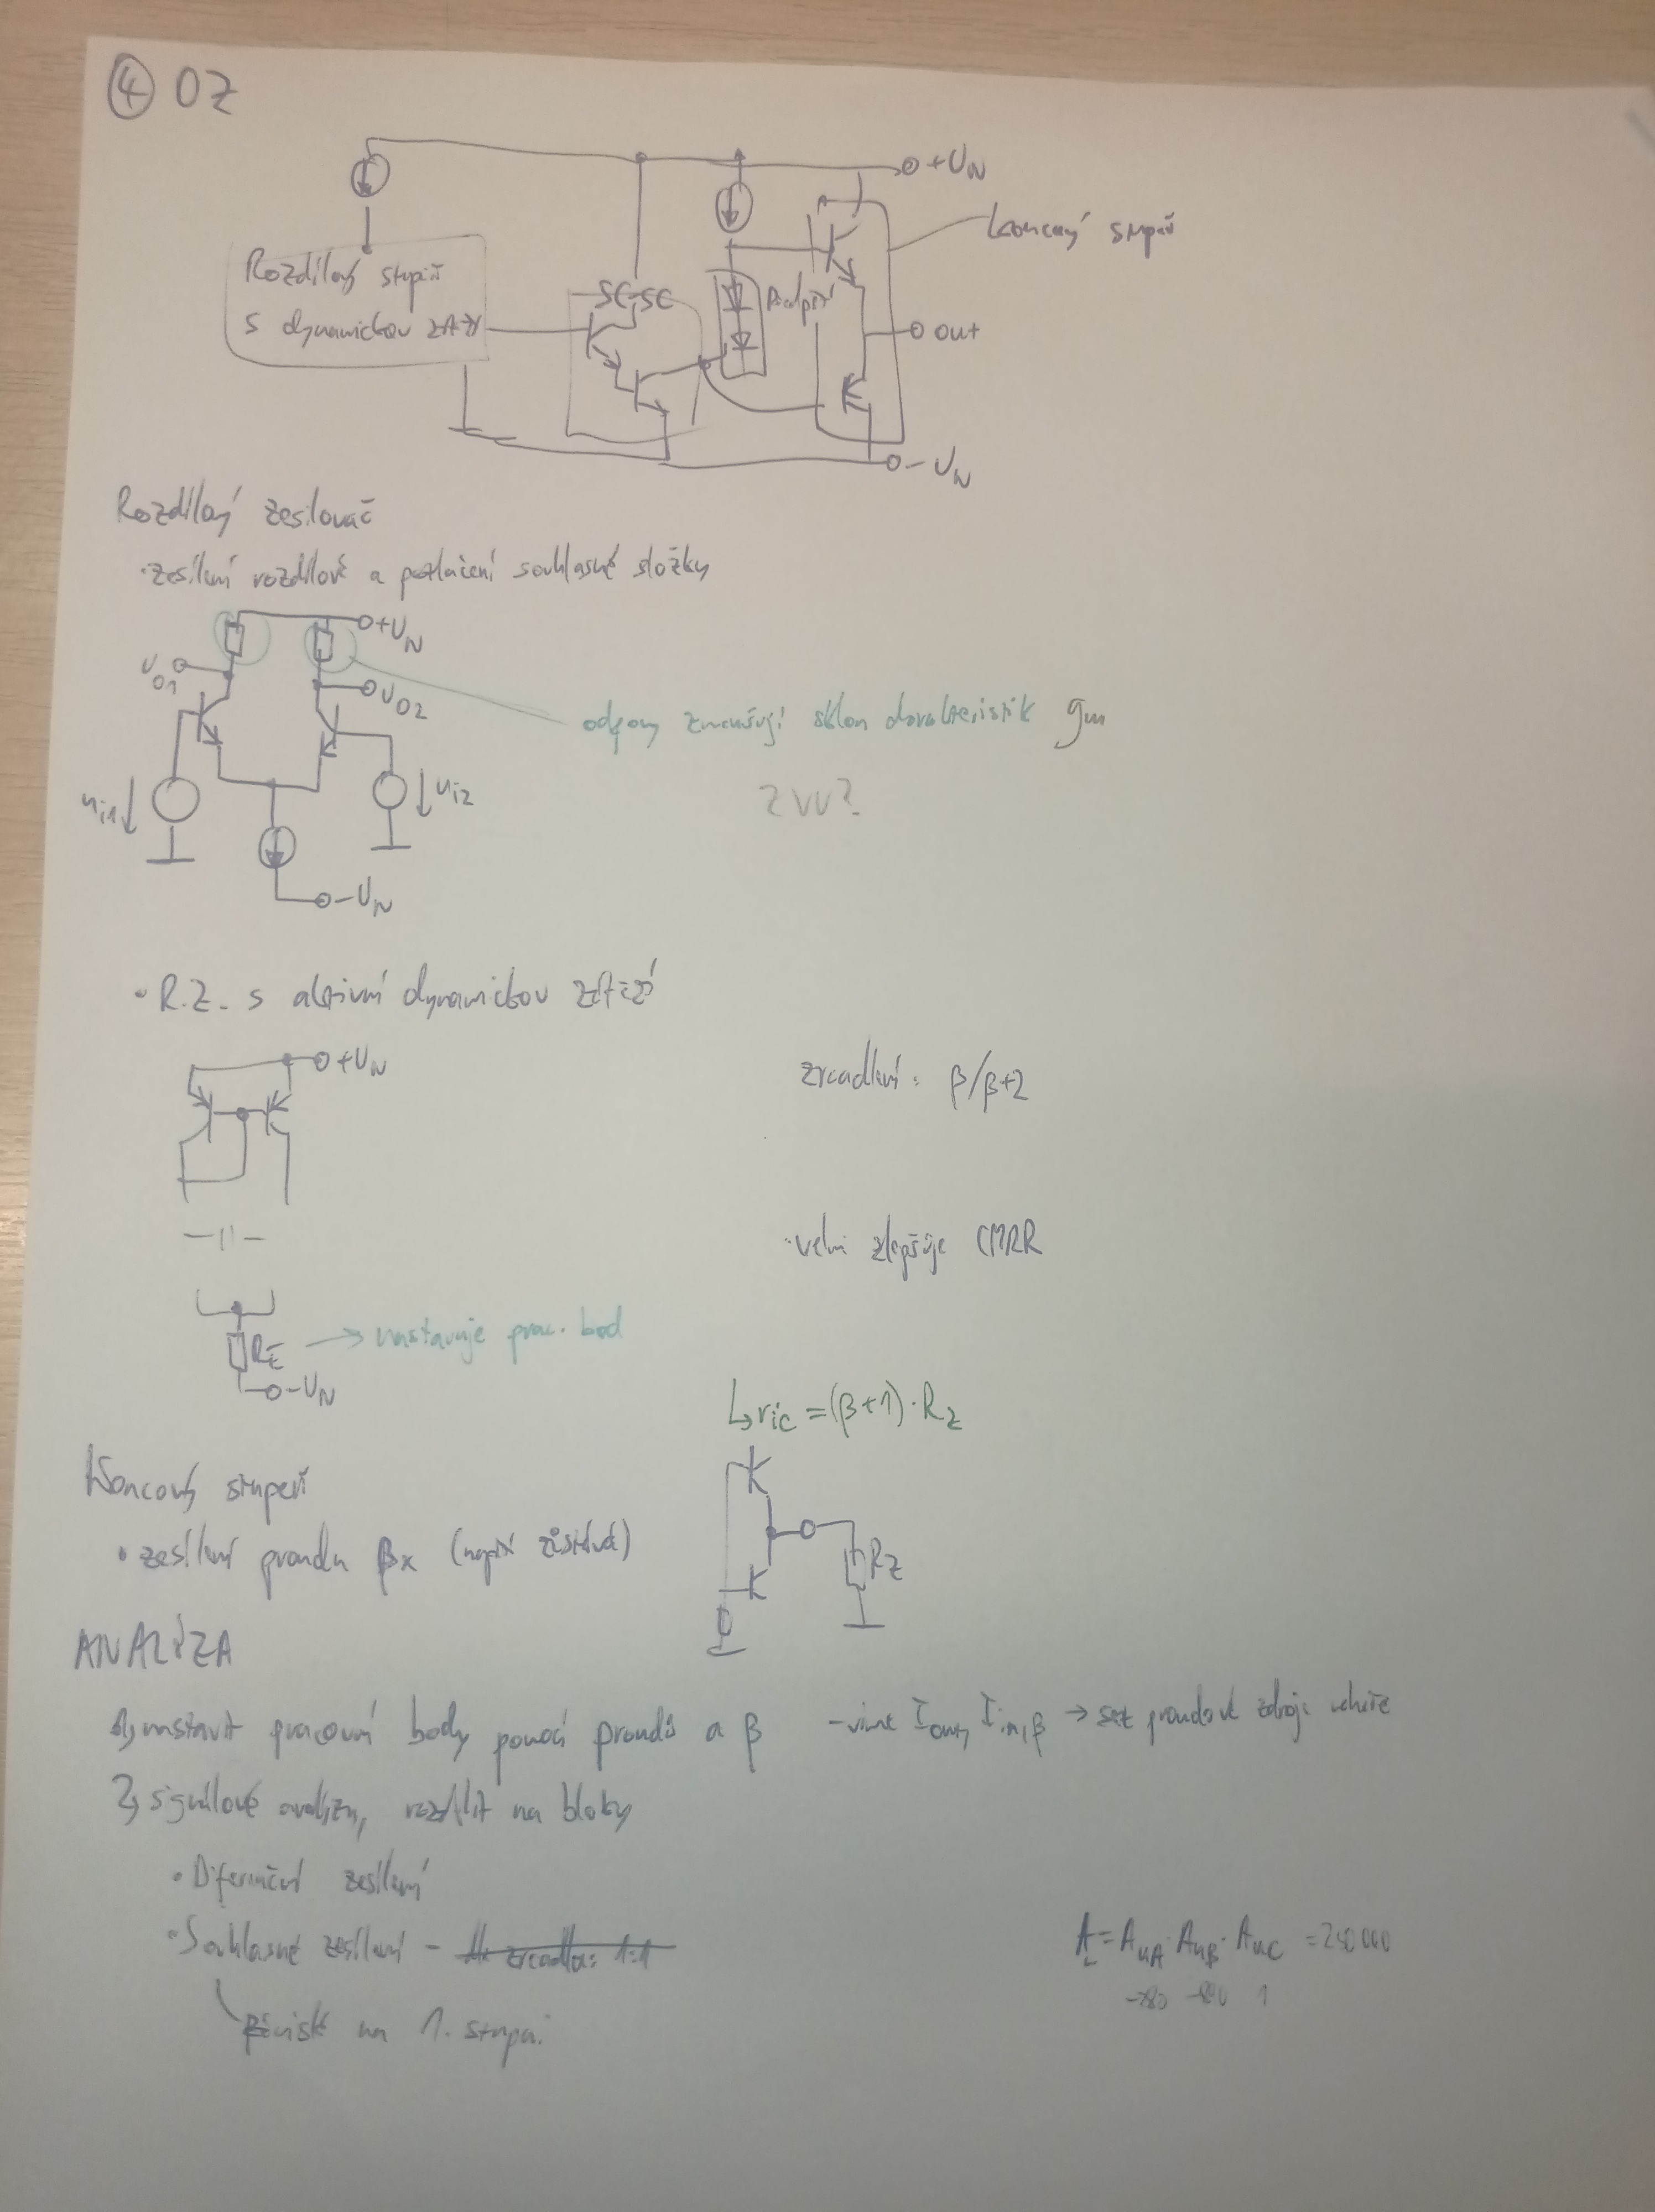 ④ OZ
+U_N
koncový stupeň
Rozdílový stupeň
s dynamickou zátěží
SC-SC
Předpětí
out
-U_N
Rozdílový zesilovač
· zesílení rozdílové a potlačení souhlasné složky
+U_N
u_o1
u_o2
odpory zmenšují sklon charakteristik gm
u_i1
u_i2
-U_N
· R.Z. s aktivní dynamickou zátěží
+U_N
zrcadlení: β/β+2
-||-
· velmi zlepšuje CMRR
R_E → nastavuje prac. bod
-U_N
↳ ric = (β+1)·R_z
Koncový stupeň
R_z
· zesílení proudu βx (napětí zůstává)
ANALÝZA
1, nastavit pracovní body pomocí proudů a β - víme I_out, I_in, β → proudové zdroje nahoře
2, signálové analýzy, rozdělit na bloky
· Diferenční zesílení
· Souhlasné zesílení - zrcadlo: 1:1
A = A_uA · A_uB · A_uC =
1
na 1. stupni